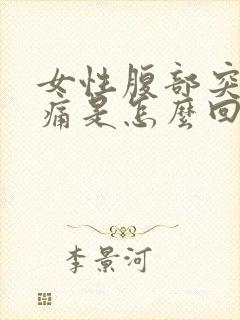 女性腹部突
痛是怎麼回
李景河